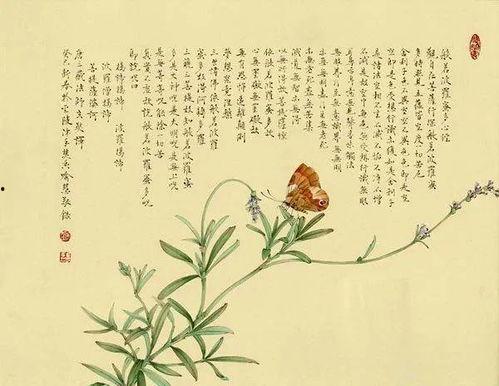 般若波羅蜜多心經
觀自在菩薩行深般若波羅蜜
多時照見五蘊皆空度一切苦厄
舍利子色不異空空不異色色即是空
空即是色受想行識亦復如是舍利子
是諸法空相不生不滅不垢不淨不增
不減是故空中無色無受想行識無眼
耳鼻舌身意無色聲香味觸法
無眼界乃至無意識界無無明
亦無無明盡乃至無老死
亦無老死盡無苦集
滅道無智亦無得
以無所得故菩提薩埵
依般若波羅蜜多故
心無罣礙無罣礙故
無有恐怖遠離顛倒
夢想究竟涅槃
三世諸佛依般若波羅
蜜多故得阿耨多羅
三藐三菩提故知般若波羅蜜
多是大神咒是大明咒是無上咒
是無等等咒能除一切苦
真實不虛故說般若波羅蜜多咒
即說咒曰
揭諦揭諦 波羅揭諦
波羅僧揭諦
菩提薩婆訶
唐三藏法師玄奘譯
癸巳新春於金陵 喻慧敬錄